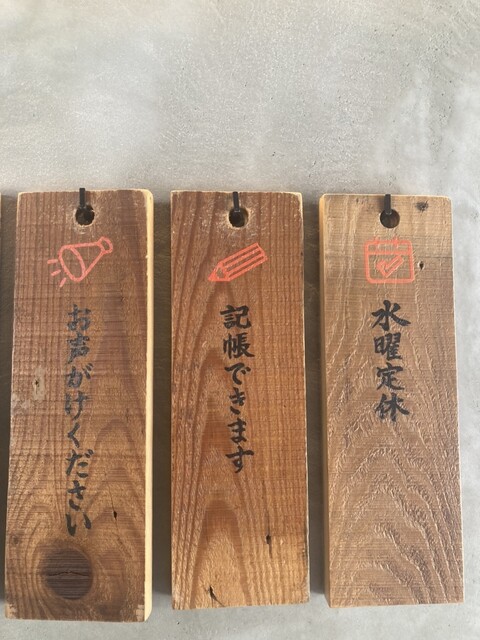 水曜定休
記帳できます
お声がけください